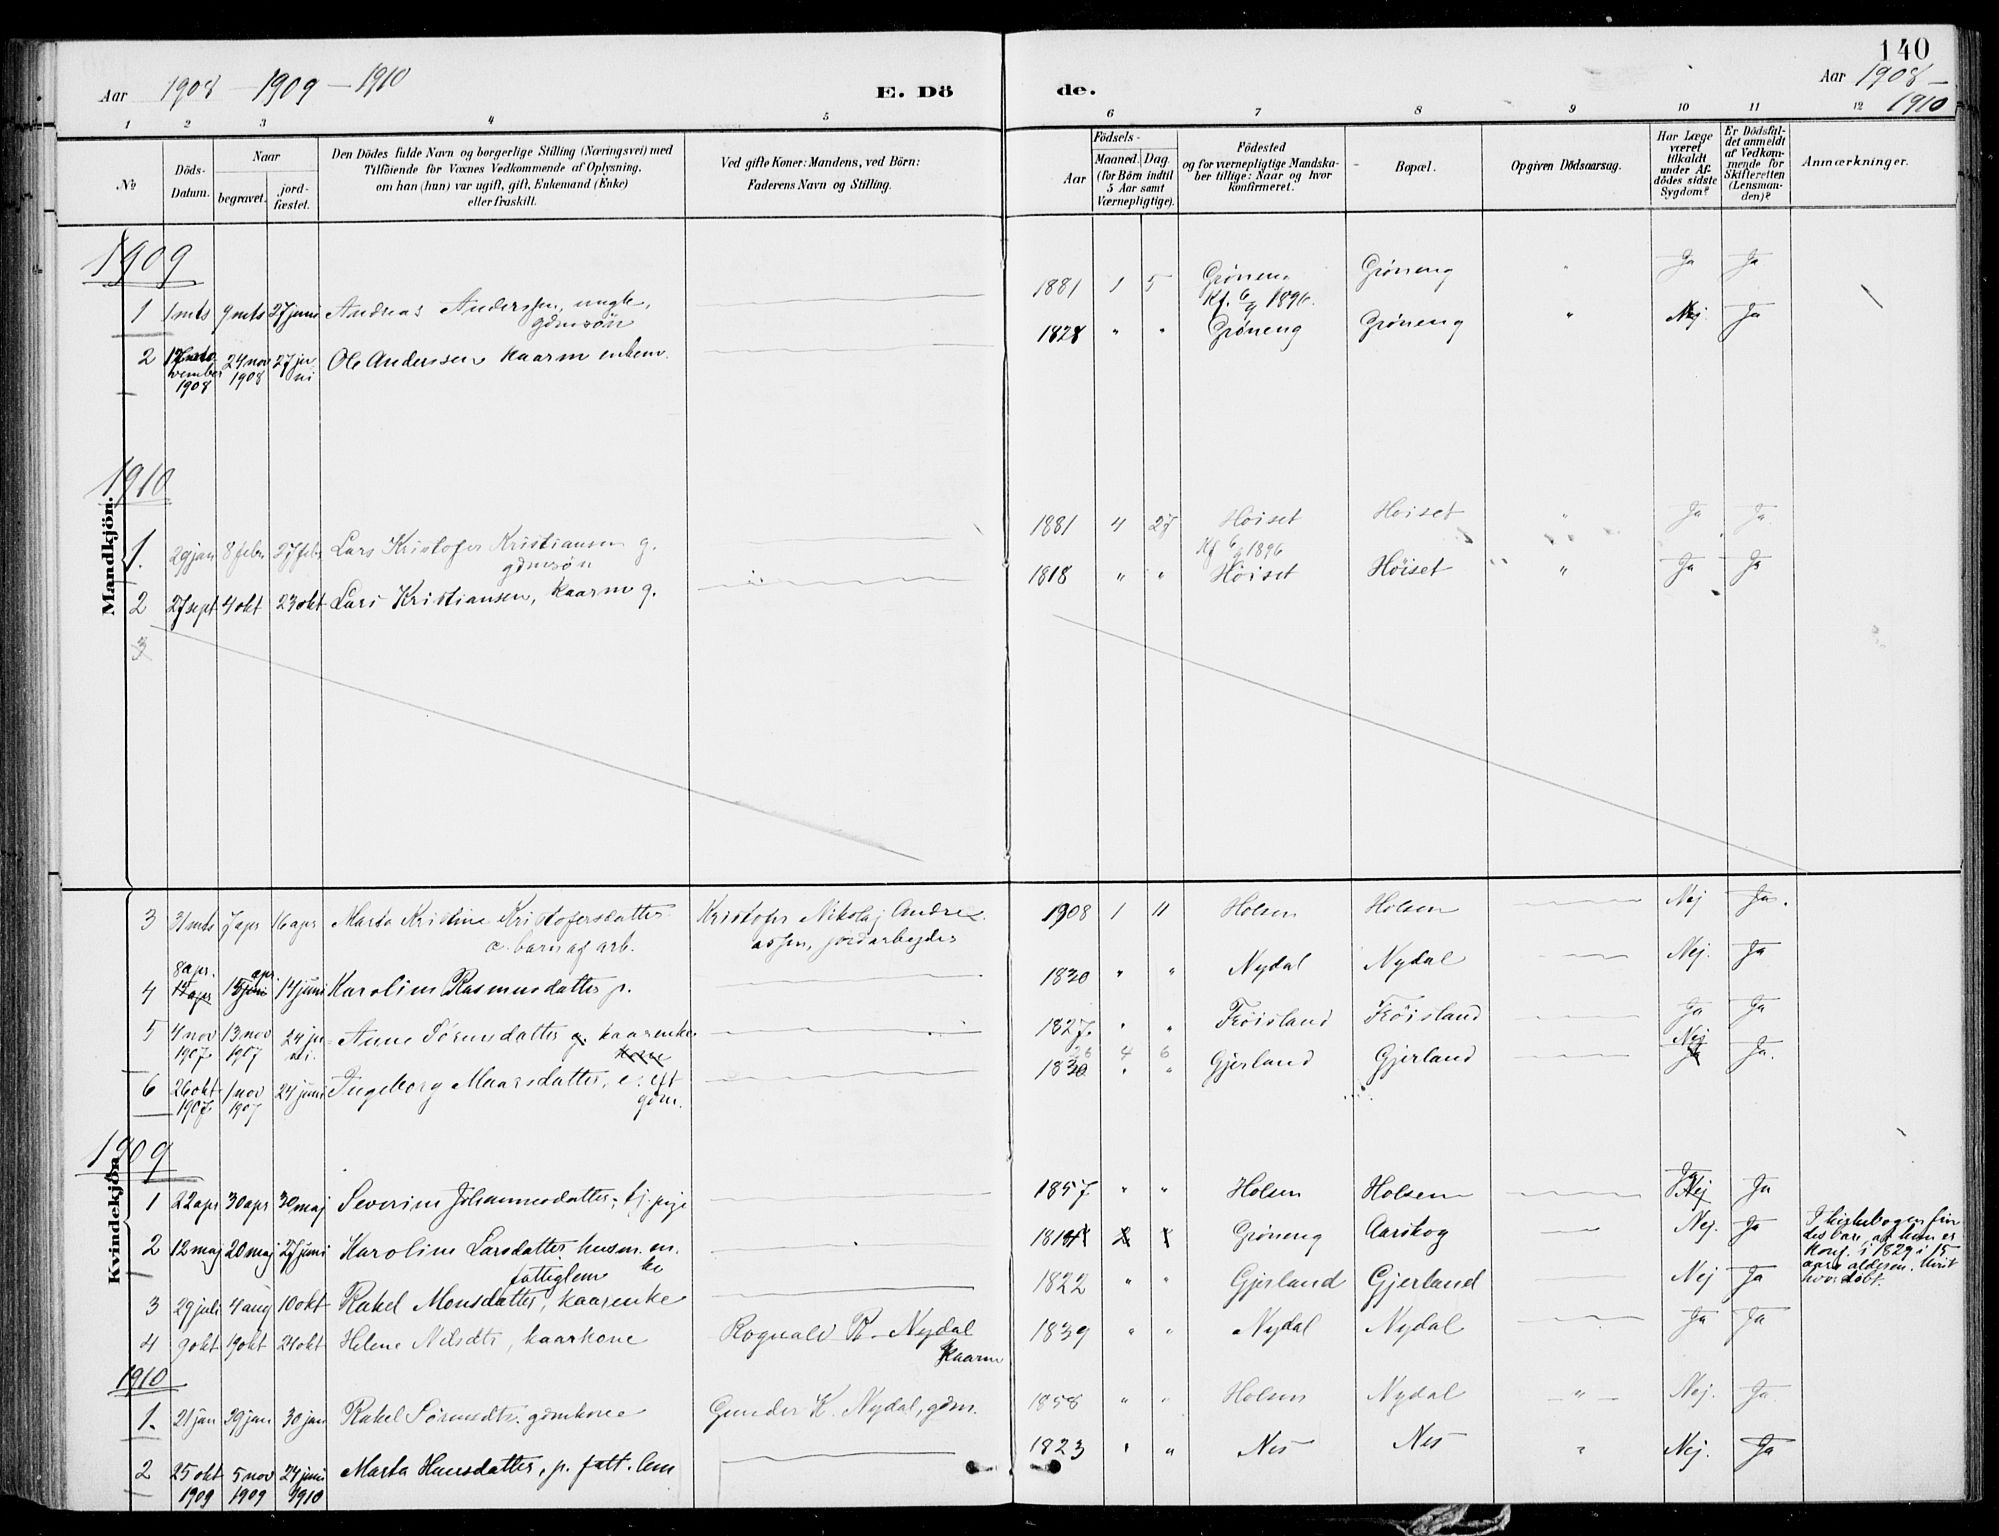 140
Aar 1908 - 1909 - 1910
E. Dö
de.
Aar 1908 - 1910
1 2 3 4 5 6 7 8 9 10 11 12
№
Döds-Datum.
Naar
begravet.
jord-fæstet.
Den Dödes fulde Navn og borgerlige Stilling (Næringsvei) med
Tilföiende for Voxnes Vedkommende af Oplysning,
om han (hun) var ugift, gift, Enkemand (Enke)
eller fraskilt.
Ved gifte Koner: Mandens, ved Börn:
Faderens Navn og Stilling.
Födsels-
Aar
Maaned. Dag.
(for Börn indtil
5 Aar samt
Værnepligtige).
Födested
og for værnepligtige Mandska-
ber tillige: Naar og hvor
konfirmeret.
Bopæl.
Opgiven Dödsaarsag.
Har Læge
været
tilkaldt
under Af-
dödes sidste
Sygdom?
Er Dödsfal-
det anmeldt
af Vedkom-
mende for
Skifteretten
(Lensman-
den)?
Anmærkninger.
Mandkjön.
1909
1 1 mts 9 mts 27 juni Andreas Anderssen, ungk., gdmsøn 1881 1 5 Grøneng Kf. 6/9 1896. Grøneng " Ja Ja
2 november 1908 24 nov 1908 27 juni Ole Anderssen kaarm enkem. 1828 " " Grøneng Grøneng " Nej Ja
1910
1. 29 jan 8 febr 27 febr Lars Kristofer Kristiansen g. gdmsøn 1881 4 27 Høiset Kf 6/9 1896 Høiset " Ja Ja
2 27 sept 4 okt 23 okt Lars Kristiansen, kaarm g. 1818 " " Høiset Høiset " Ja Ja
3
Kvindekjön
3 31 mts 7 apr 16 apr Marta Kristine Kristofersdatter æ. barn af arb. Kristofer Nikolaj Andreassen, jordarbejder 1908 1 11 Holsen Holsen Nej Ja.
4 8 apr. 15 apr 14 juni Karoline Rasmusdatter p. 1830 " " Nydal Nydal Nej. Ja
5 4 nov 1907 13 nov 1907 24 juni. Anne Sørensdatter g. kaarenke 1827 " " Frøisland Frøisland Ja Ja
6 26 okt 1907 1 nov 1907 24 juni Ingeborg Maarsdatter, e. eft gdm. 1830 26 4 6 Gjerland Gjerland Nej Ja.
1909
1 22 apr 30 apr 30 maj Severine Johannesdatter, tj. pige 1857 " " Holsen Holsen Nej Ja
2 12 maj 20 maj 27 juni Karoline Larsdatter husm. enke fattiglem 1814 Grøneng Aarskog Nej. Ja I kirkebogen findes bare, at hun er konf. i 1829 i 15 aars alderen. Uvist hvor døbt.
3 29 juli 4 aug 10 okt Rakel Monsdatter, kaarenke 1822 " " Gjerland Gjerland Nej Ja
4 9 okt 19 okt 24 okt Helene Nilsdtr, kaarkone Rognald R. Nydal kaarm 1839 " " Nydal Nydal Ja Ja
1910
1. 21 jan 29 jan 30 jan Rakel Sørensdtr. gdmkone Gunder K. Nydal, gdm. 1858 " " Holsen Nydal " Nej. Ja
2 25 okt 1909 5 nov 1909 24 juni 1910 Marta Hansdatter, p. fatt. lem 1823 " " Nes Nes " Nej. Ja